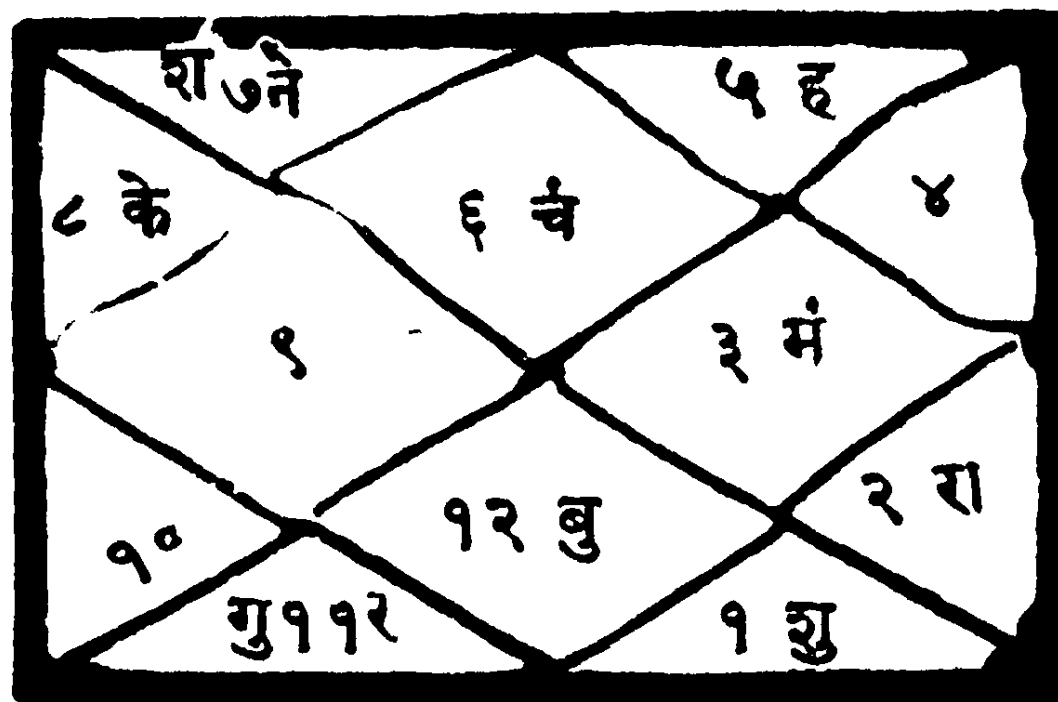 श ७ने
५ ह
८ के
६ चं
४
९
३ मं
१०
१२ बु
२ रा
गु११र
१ शु